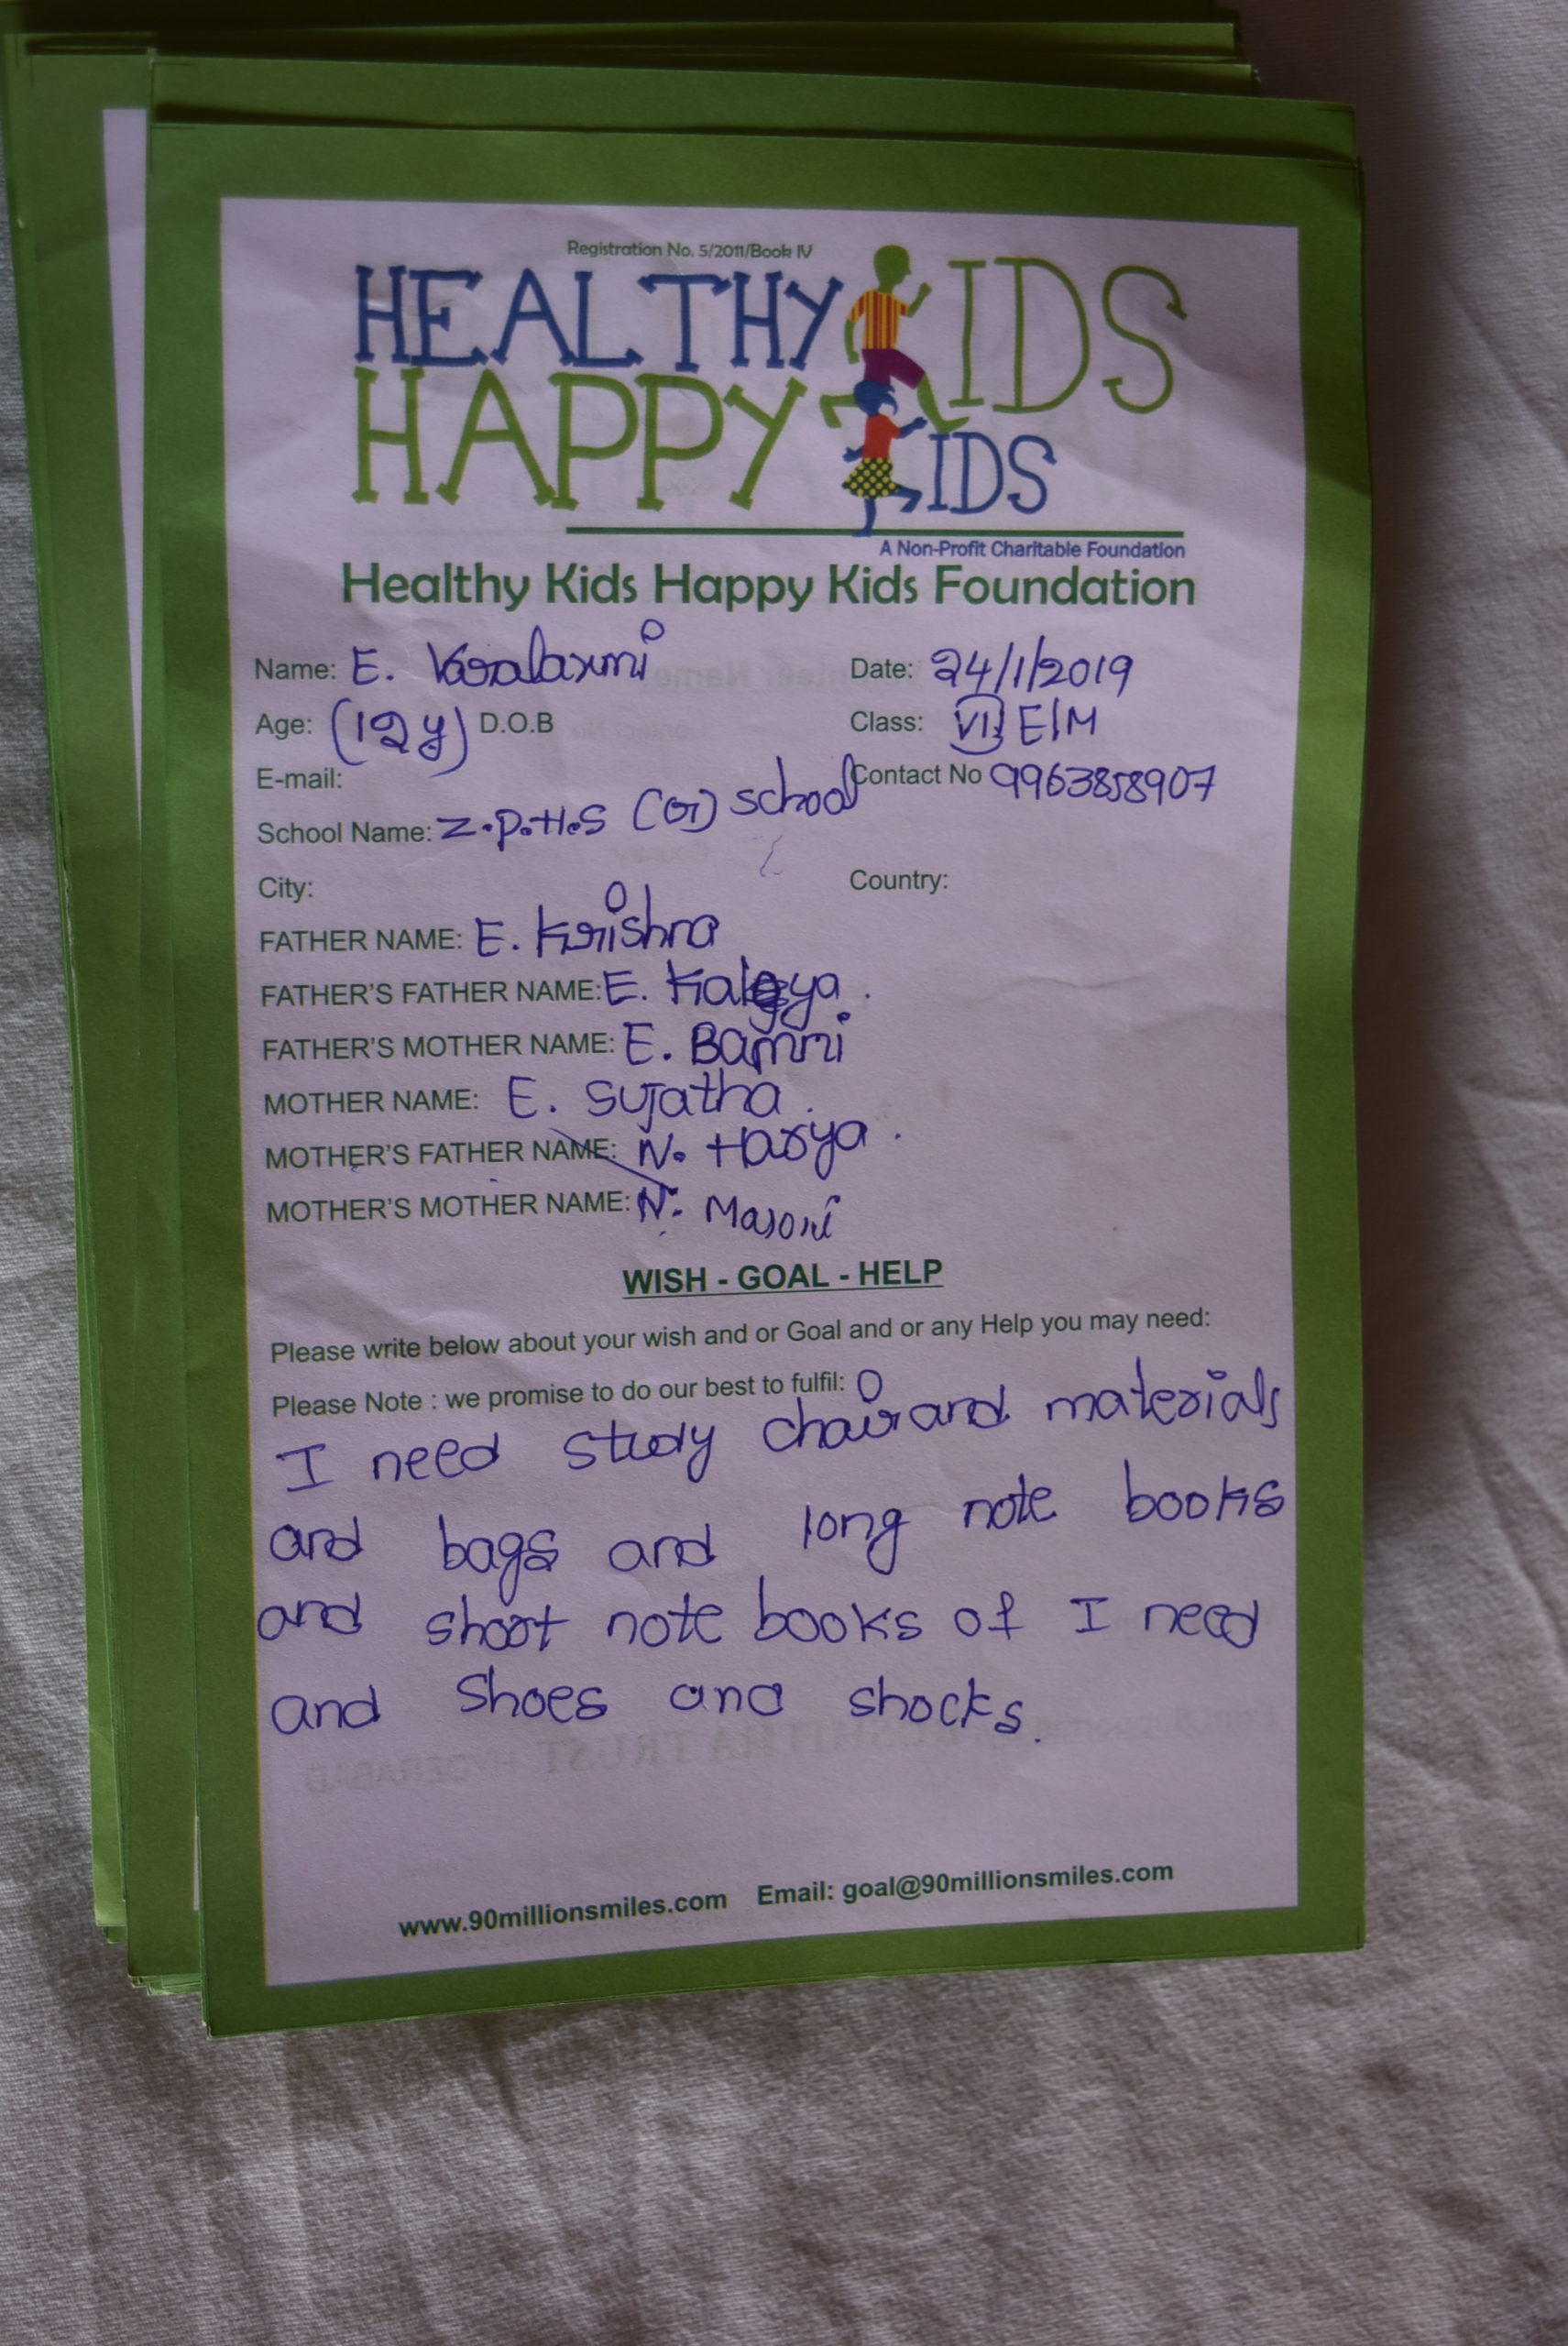 Registration No. 5/2011/Book IV
HEALTHY KIDS
HAPPY KIDS
A Non-Profit Charitable Foundation
Healthy Kids Happy Kids Foundation
Name: E. Varalaxmi Date: 24/1/2019
Age: (12 y) D.O.B Class: VII E/M
E-mail: Contact No 9963858907
School Name: Z.P.H.S (G) School
City: Country:
FATHER NAME: E. Krishna
FATHER'S FATHER NAME: E.
FATHER'S MOTHER NAME: E. Bamni
MOTHER NAME: E. Sujatha.
MOTHER'S FATHER NAME: N. Harya.
MOTHER'S MOTHER NAME: N. Maroni
WISH - GOAL - HELP
Please write below about your wish and or Goal and or any Help you may need:
Please Note : we promise to do our best to fulfil:
I need study chair and materials
and bags and long note books
and short note books of I need
and Shoes and shocks.
www.90millionsmiles.com Email: goal@90millionsmiles.com